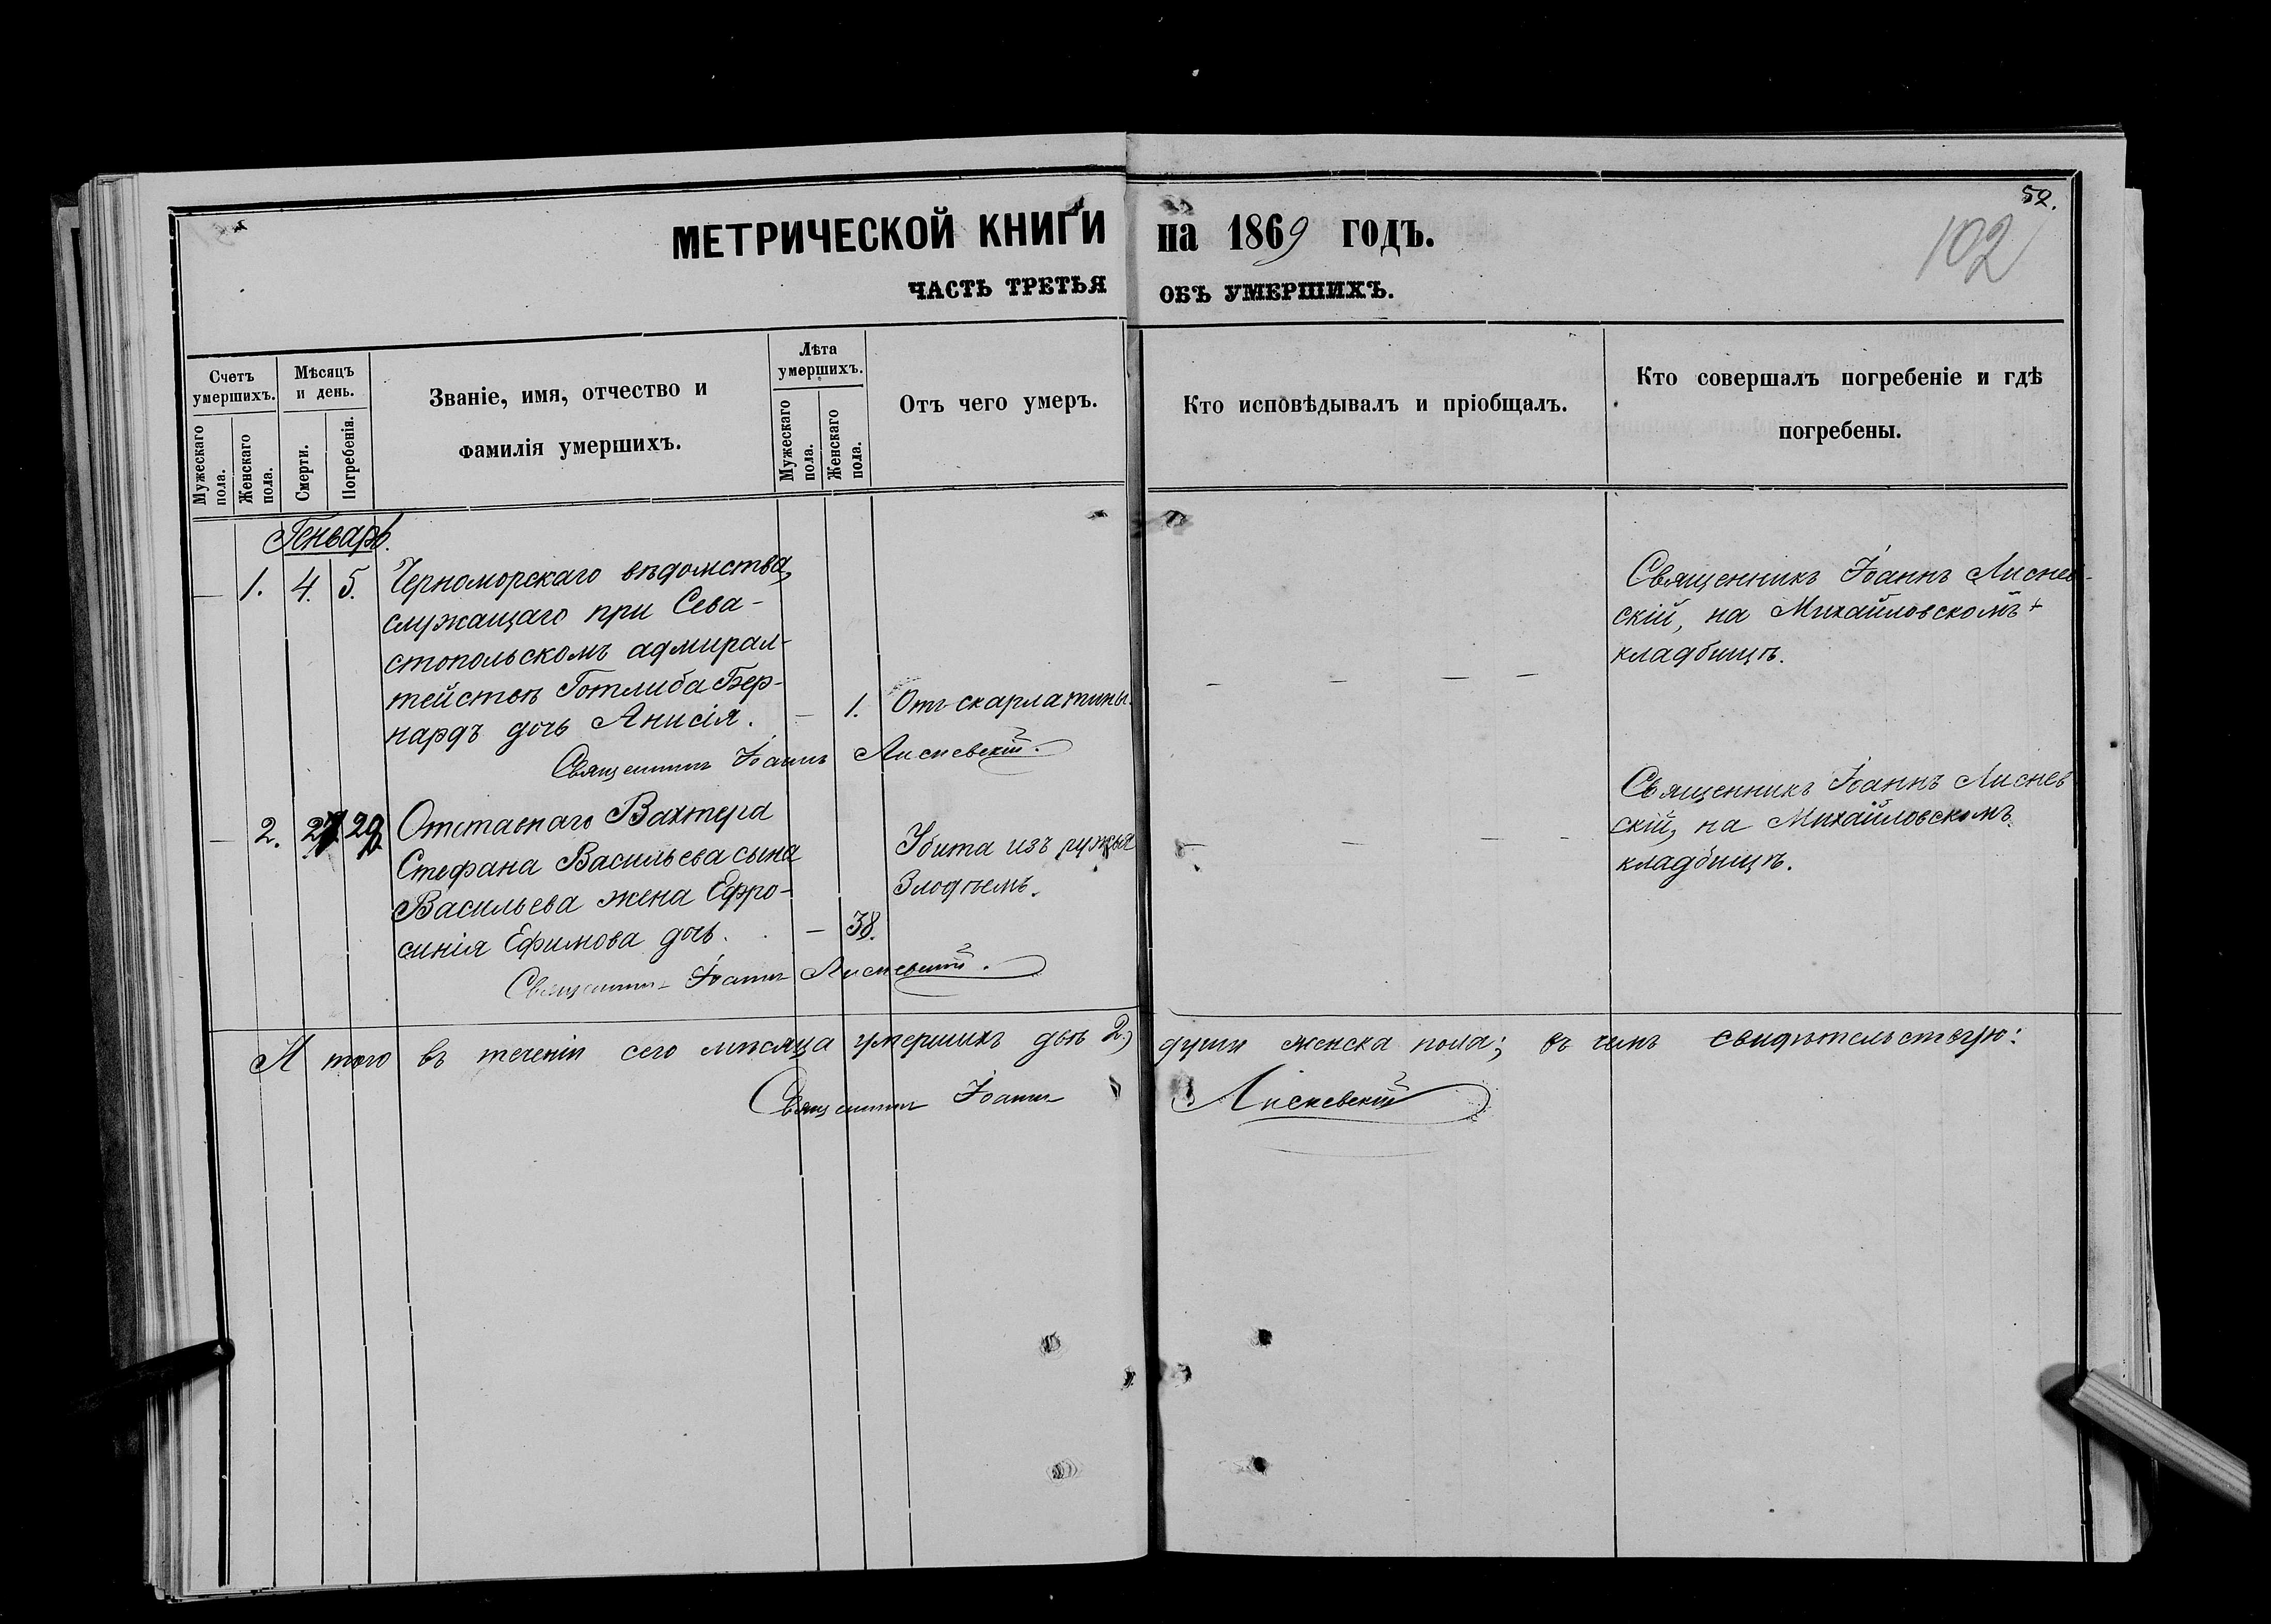 МЕТРИЧЕСКОЙ КНИГИ на 1869 годъ.
52.
102
ЧАСТЬ ТРЕТЬЯ ОБЪ УМЕРШИХЪ.
Счетъ умершихъ.
Мужескаго пола.
Женскаго пола.
Мѣсяцъ и день.
Смерти.
Погребенія.
Званіе, имя, отчество и
фамилія умершихъ.
Лѣта умершихъ.
Мужескаго пола.
Женскаго пола.
Отъ чего умеръ.
Кто исповѣдывалъ и пріобщалъ.
Кто совершалъ погребеніе и гдѣ
погребены.
Генварь.
— 1. 4. 5. Черноморскаго вѣдомства,
служащаго при Сева-
стопольскомъ адмирал-
тействѣ Готлиба Бер-
нардъ дочь Анисія. — 1. Отъ скарлатины.
Священникъ Іоаннъ Лисневскій.
Священникъ Іоаннъ Лиснев-
скій, на Михайловскомъ
кладбищѣ.
— 2. 27 29 Отставнаго Вахтера
Стефана Васильева сына
Васильева жена Ефро-
синія Ефимова дочь. — 38.
Убита изъ ружья
Злодѣемъ.
Священникъ Іоаннъ Лисневскій.
Священникъ Іоаннъ Лиснев
скій, на Михайловскомъ
кладбищѣ.
И того въ теченіи сего мѣсяца умершихъ двѣ 2) души женска пола; въ чемъ свидѣтельствую:
Священникъ Іоаннъ Лисневскій